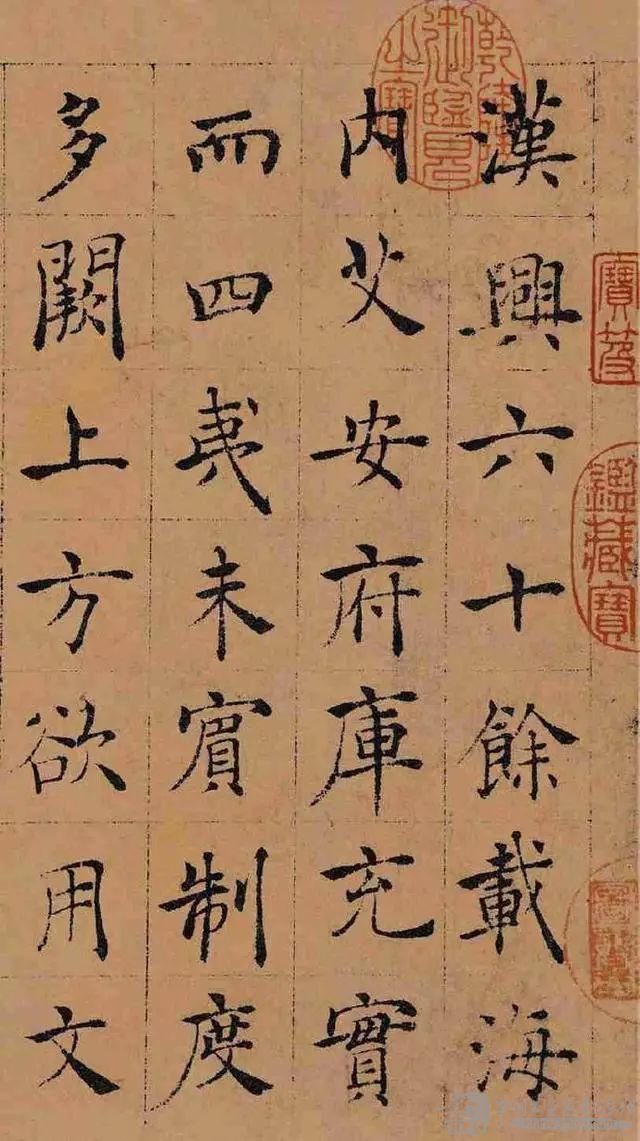 漢興六十餘載海
内艾安府庫充實
而四夷未賓制度
多闕上方欲用文
乾隆御覽之寶
寶笈
鑑藏寶